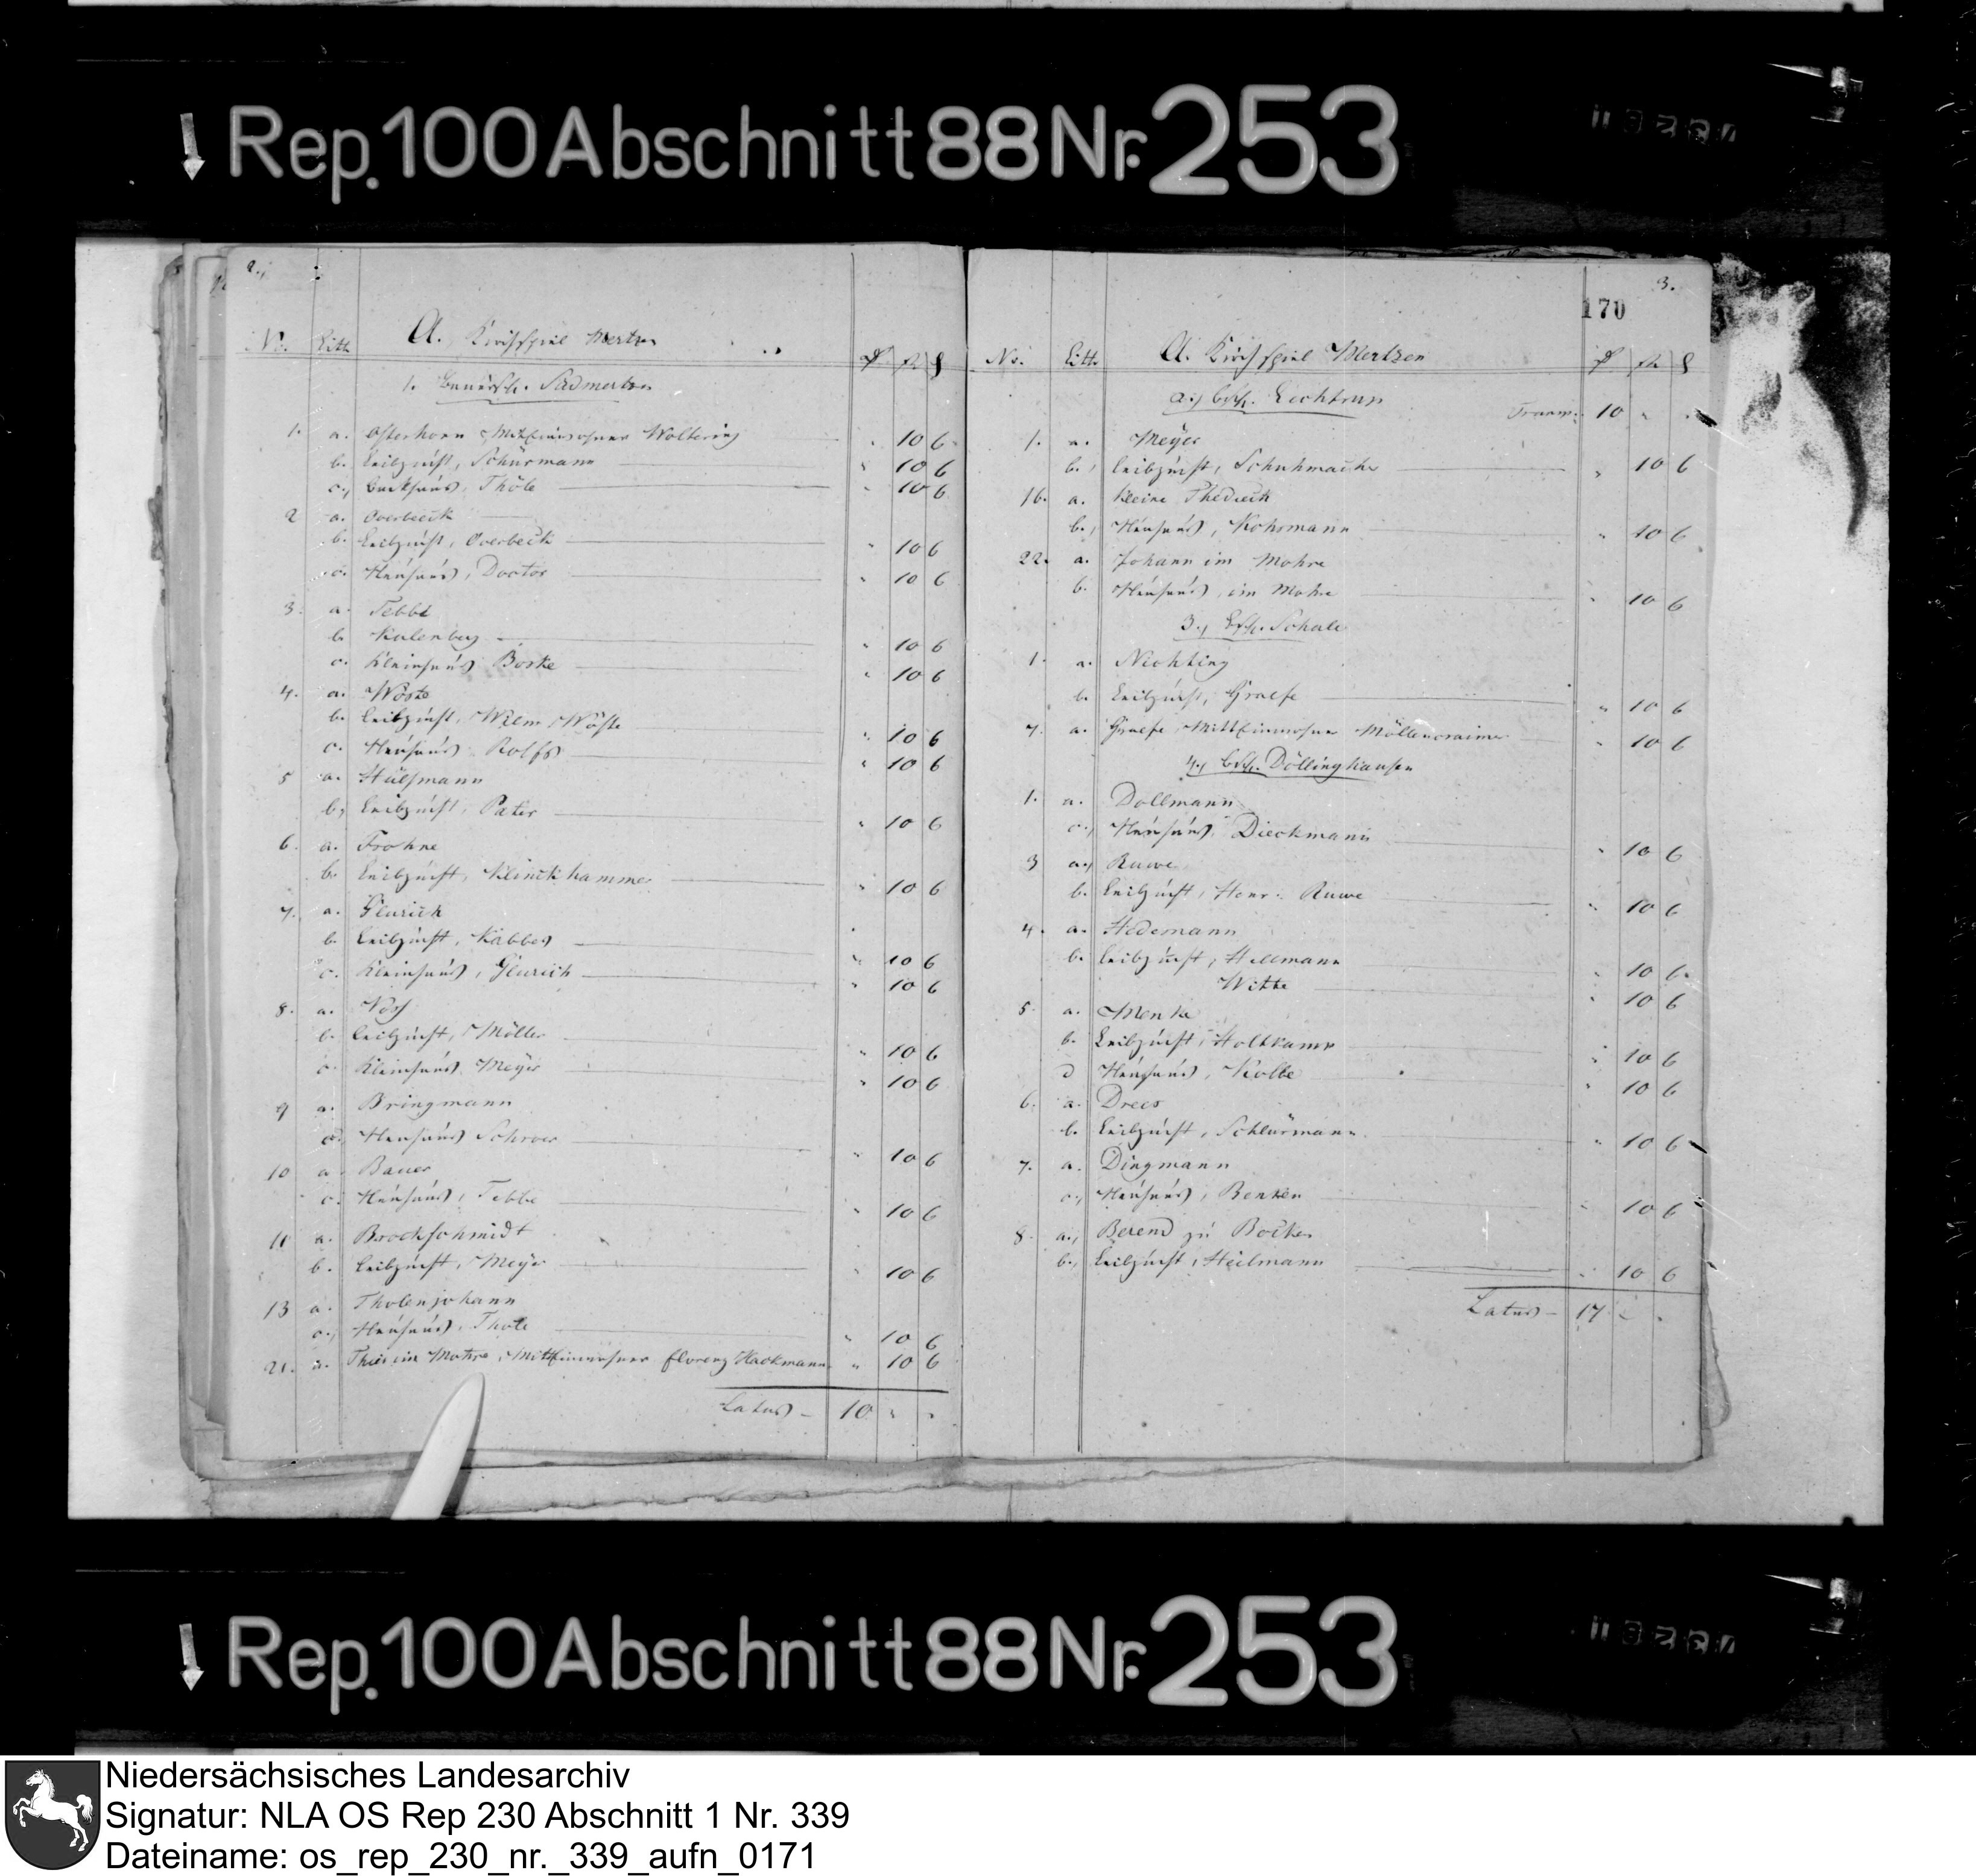 Rep. 100 Abschnitt 88 Nr. 253
2.,
No. Litt. A. Kirchspiel Mertzen
1. Bauersch. Südmertzen
1. a. Osterhorn, Miteinwohner Woltering " 10 6
b. Leibzucht, Schürmann " 10 6
c., Backhaus, Thöle " 10 6
2 a. Overbeck
b. Leibzucht, Overbeck " 10 6
c. Heuhaus, Doctor " 10 6
3. a. Tebbe
b. Kulenberg " 10 6
c. Kleinhaus Börke " 10 6
4. a. Wöste
b. Leibzucht, Wilm Wöste " 10 6
c. Heuhaus, Rolfs " 10 6
5 a. Hülsmann
b., Leibzucht, Pater " 10 6
6. a. Frohne
b. Leibzucht, Klinckhammer " 10 6
7. a. Glurich
b. Leibzucht, Kabbes " 10 6
c. Kleinhaus, Glurich " 10 6
8. a. Voss
b. Leibzucht, Möller " 10 6
c. Kleinhaus Meyer " 10 6
9 a. Bringmann
Heuhaus Schroer " 10 6
10 a. Bauer
c. Heuhaus, Tebbe " 10 6
11 a. Brockschmidt
b. Leibzucht, Meyer " 10 6
13 a. Tholenjohann
c., Heuhaus, Thole " 10 6
21. a. Thies im Mohre, Miteinwohner Florenz Hackmann " 10 6
Latus 10 " "
3.
170
No. Litt. A. Kirchspiel Mertzen
2., Bsch. Lechtrup
Transp. 10 " "
1. a. Meyer
b., Leibzucht, Schuhmacher " 10 6
16. a. Kleine Thedieck
b., Heuhaus, Kohrmann " 10 6
22. a. Johann im Mohre
b. Heuhaus, im Mohre " 10 6
3., Bsch. Schale
1. a. Nichting
b. Leibzucht, Graefe " 10 6
7. a. Graefe, Miteinwohner " 10 6
4., Bsch. Döllinghausen
1. a. Dollmann
c., Heuhaus, Dieckmann " 10 6
3 a., Ruwe
b. Leibzucht, Henr. Ruwe " 10 6
4. a. Hedemann
b. Leibzucht, Hellmann " 10 6
Witte " 10 6
5 a. Menke
b. Leibzucht, Holtkamp " 10 6
d Heuhaus, Kolbe " 10 6
6. a. Drees
b. Leibzucht, Schlürmann " 10 6
7. a. Dingmann
c., Heuhaus, Benken " 10 6
8. a., Berend zu Bocken
b., Leibzucht, Heilmann " 10 6
Latus 17 " "
Rep. 100 Abschnitt 88 Nr. 253
Niedersächsisches Landesarchiv
Signatur: NLA OS Rep 230 Abschnitt 1 Nr. 339
Dateiname: os_rep_230_nr._339_aufn_0171